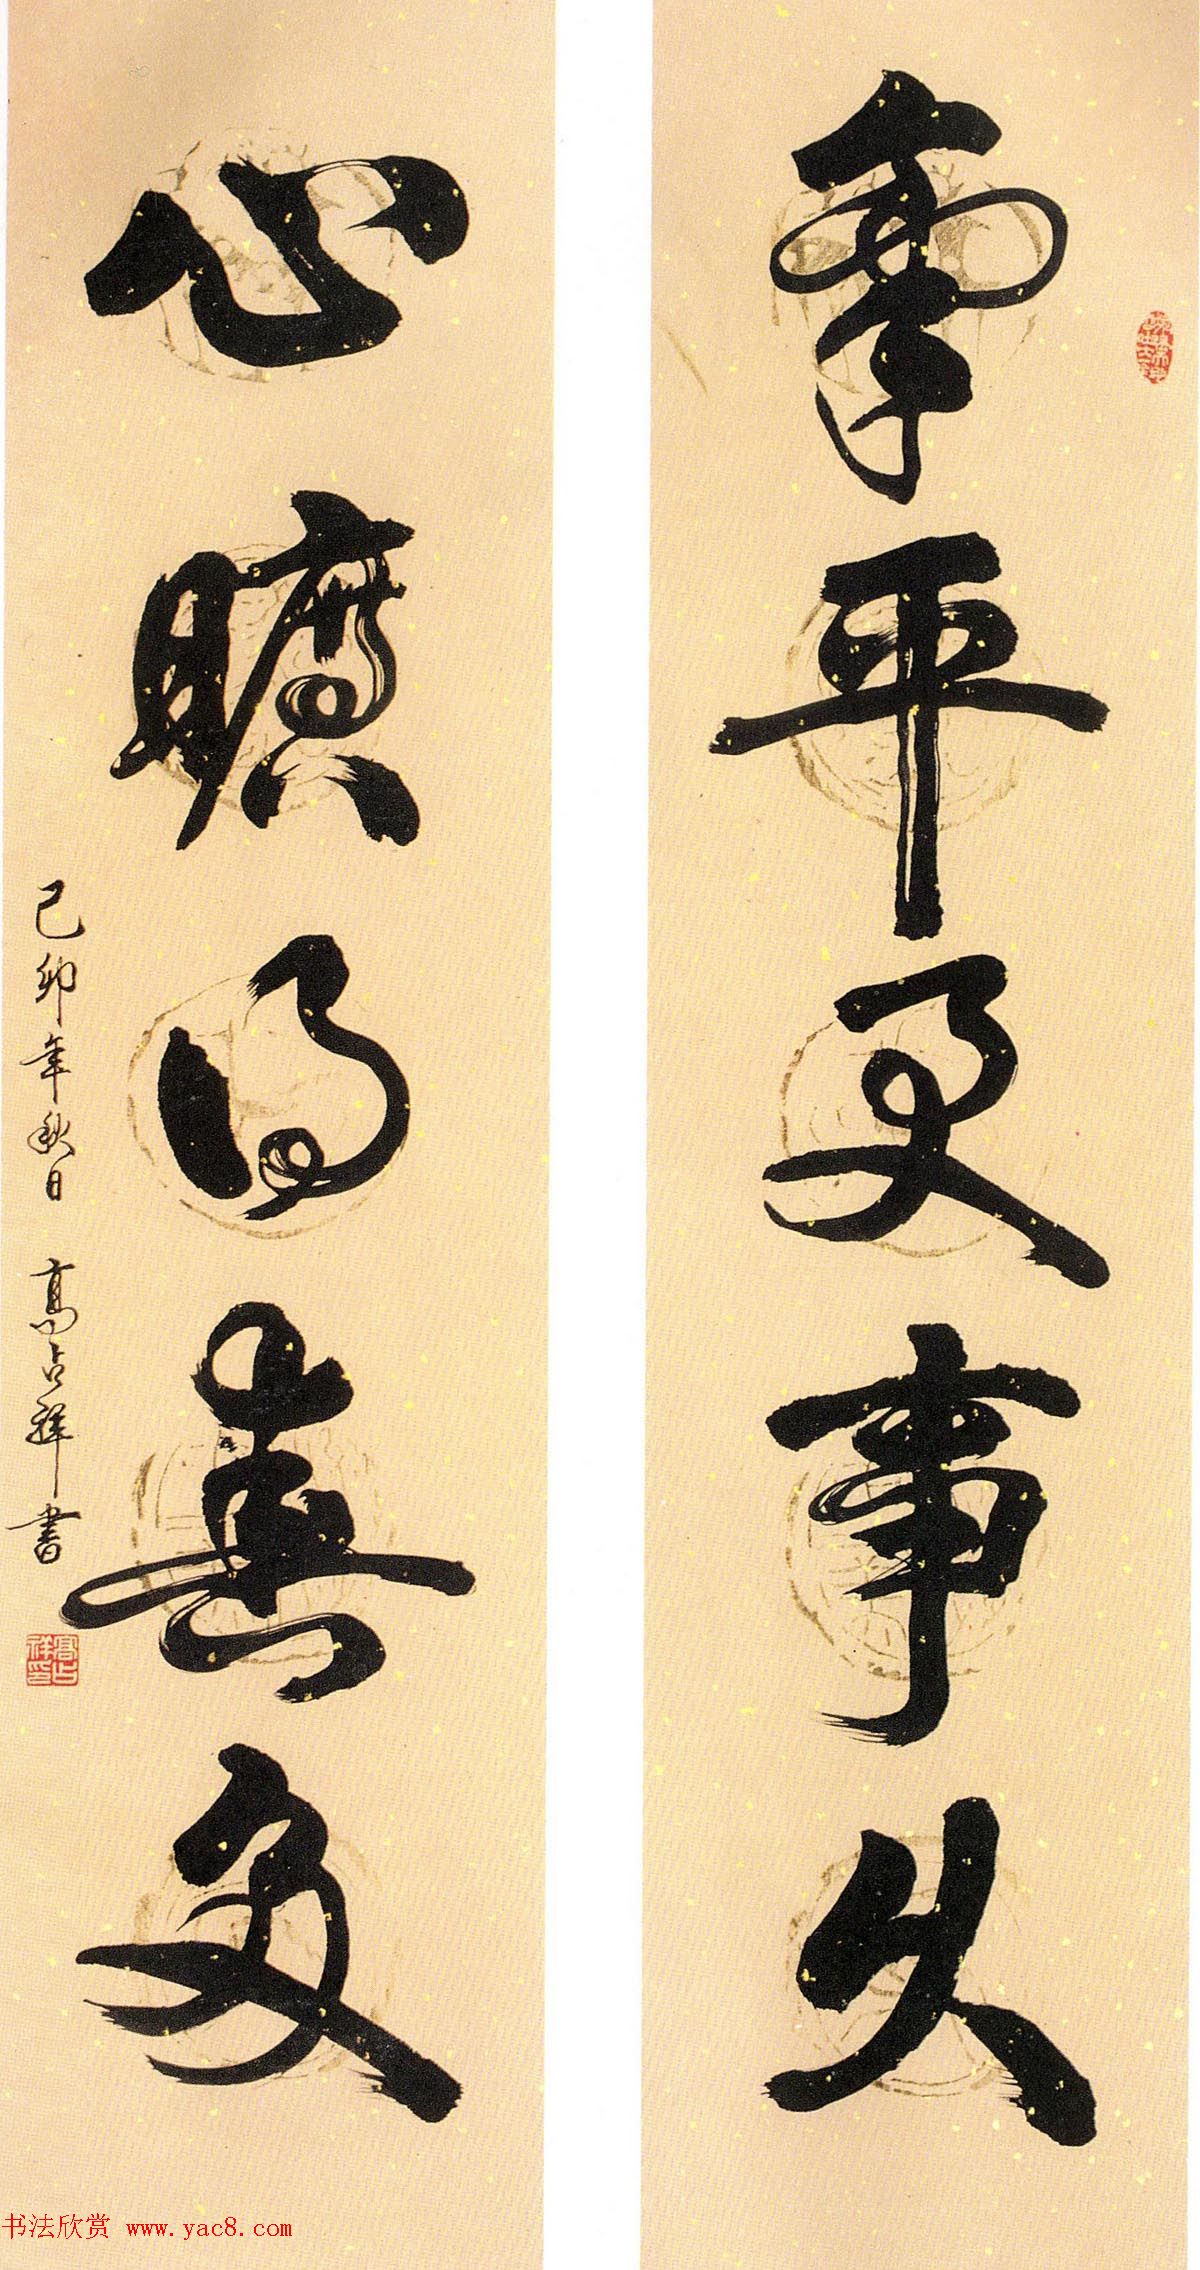 氣平更事久
心曠得真多
己卯年秋日 高占祥書
高占祥印
书法欣赏 www.yac8.com